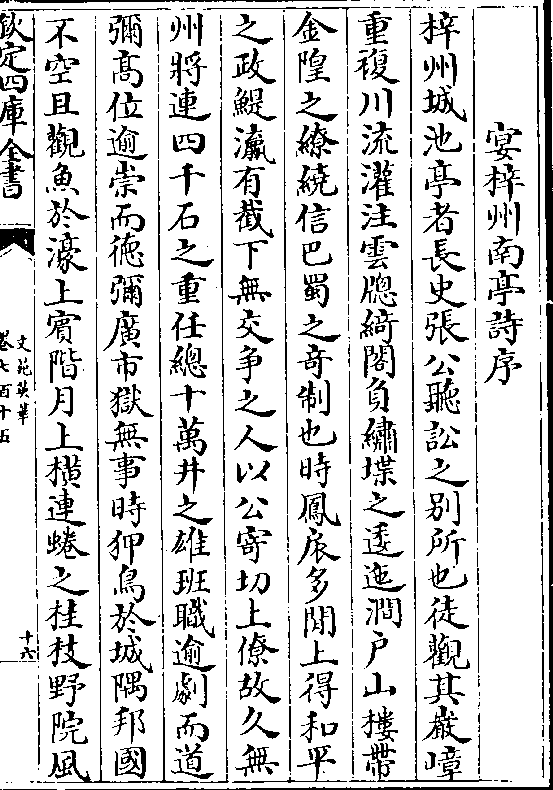 宴梓州南亭詩序
梓州城池亭者長史張公聽訟之别所也徒觀其巖嶂
重複川流灌注雲牕綺閣負繡堞之逶迤澗戸山樓帶
金隍之繚繞信巴蜀之奇制也時鳳扆多閒上得和平
之政鯷瀛有截下無交争之人以公寄切上僚故久無
州將連四千石之重任緫十萬井之雄班職逾劇而道
彌髙位逾崇而徳彌廣市獄無事時狎鳥於城隅邦國
不空且觀魚於濠上賓階月上横連蜷之桂枝野院風
欽定四庫全書
文苑英華
卷七百十五
十六